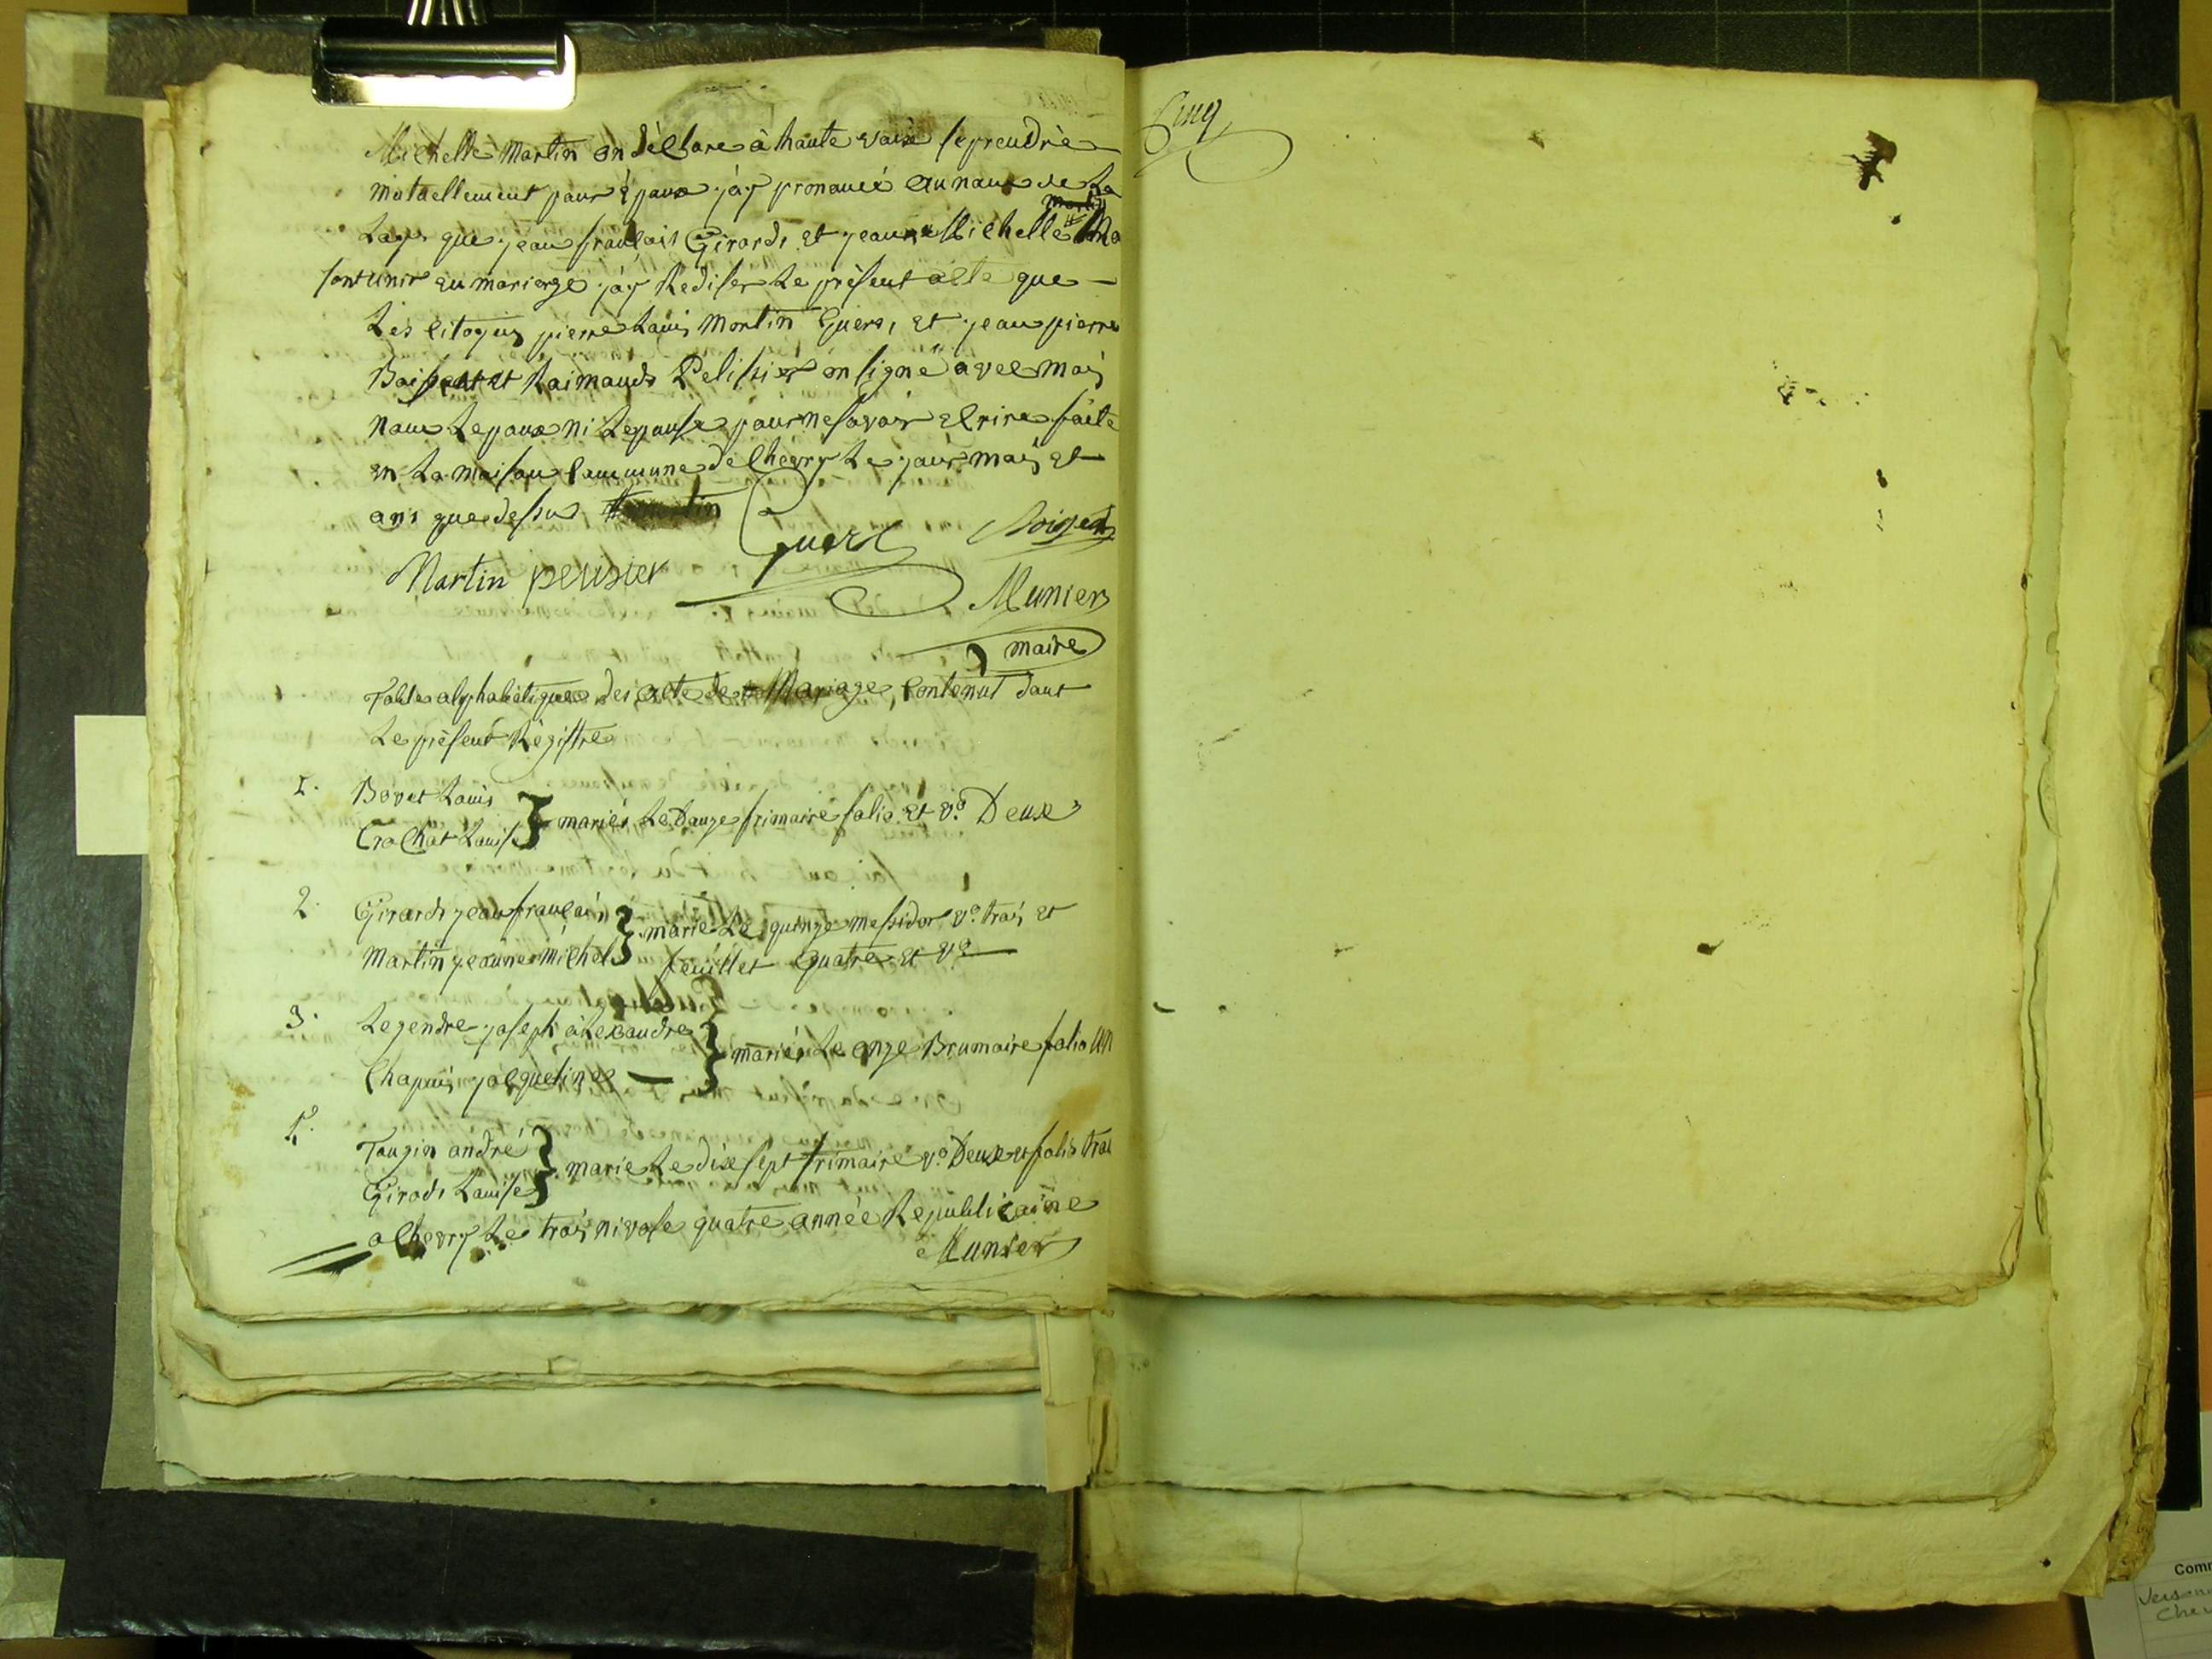 Michelle Martin on déclare à haute vaix se prendre
mutuellement pour épaux j'ay pronancé au nam de La
Martin
Loy que jean français Girard, et jeanne Michelle Ma
sont unir en mariage j'ay Rediser Le présent acte que
Les citoyens pierre Louis Martin Guers, et jean pierre
Boissent et Raimand Pelissier on signé avec moy
nom Lepaux ni Lepause pour ne savoir ecrire faite
en La maison commune de Chevry Le jour mois et
ans que dessus
Guers Boissent
Martin pelisier
Munier
maire
Table alphabétique des acte de Mariage, contenut dans
Le présent Régistre
1. Bovet Louis
Crochat Louise } mariés Le Douze frimaire folio et vo. Deux
2. Girard jean français
Martin jeanne Michel } marie Le quinze messidor vo. trois et
feuillet quatre et vo
3. Legendre joseph alexandre
Chapuis jacqueline } mariés Le onze Brumaire folio un
Tougin andré
Girod Louise } marie Le dixsept frimaire vo Deux et folio trois
a Chevry Le trois nivose quatre année Republicaine
Munier
Cinq
Com
Cher